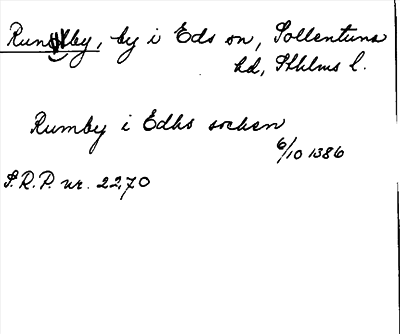 Runby, by i Eds sn, Sollentuna
hd, Sthlms l.
Rumby i Edhs socken
6/10 1386
S.R.P. nr. 2270